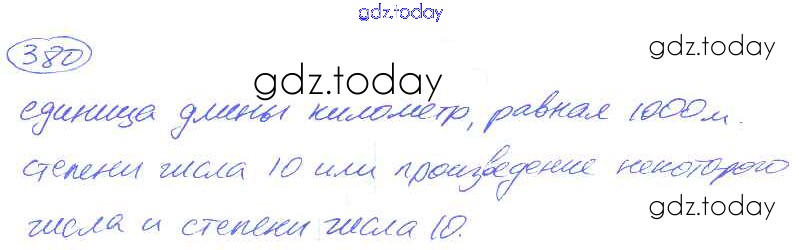 gdz.today
380
gdz.today
gdz.today
единица длины километр, равная 1000 м.
степени числа 10 или произведение некоторого
числа и степени числа 10.
gdz.today